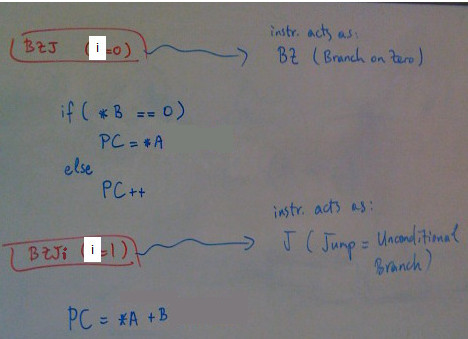 BZJ (i=0)
instr. acts as:
BZ (Branch on Zero)
if ( *B == 0)
PC = *A
else
PC++
BZJi (i=1)
instr. acts as:
J (Jump = Unconditional
Branch)
PC = *A + B